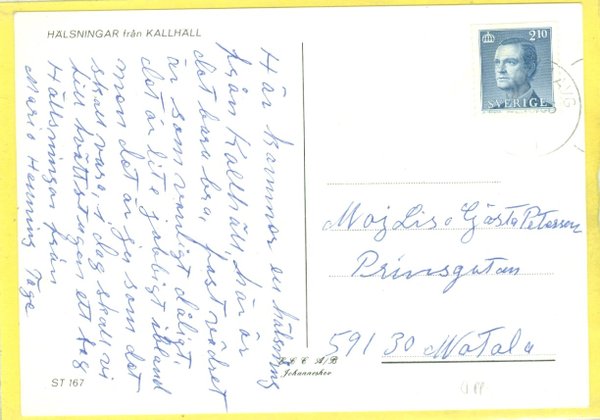 HÄLSNINGAR från KALLHÄLL
Här kommer en hälsning
från Kallhäll, här är
det bara bra, fast vädret
är som vanligt dåligt,
det är lite jobbigt ibland
men det är ju som det
skall vara, i dag skall vi
till tvättstugan ett tag
Hälsningar från
Mario Henning Tage
ST 167
2.10
SVERIGE
AUG
Maj Lis o Gösta Peterson
Prinsgatan
591 30 Motala
A/B
Johanneshov